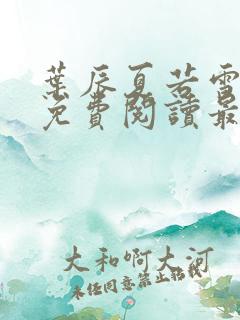 葉辰夏若雪
免費閱讀最
大和啊大河
未任同意禁止轉載